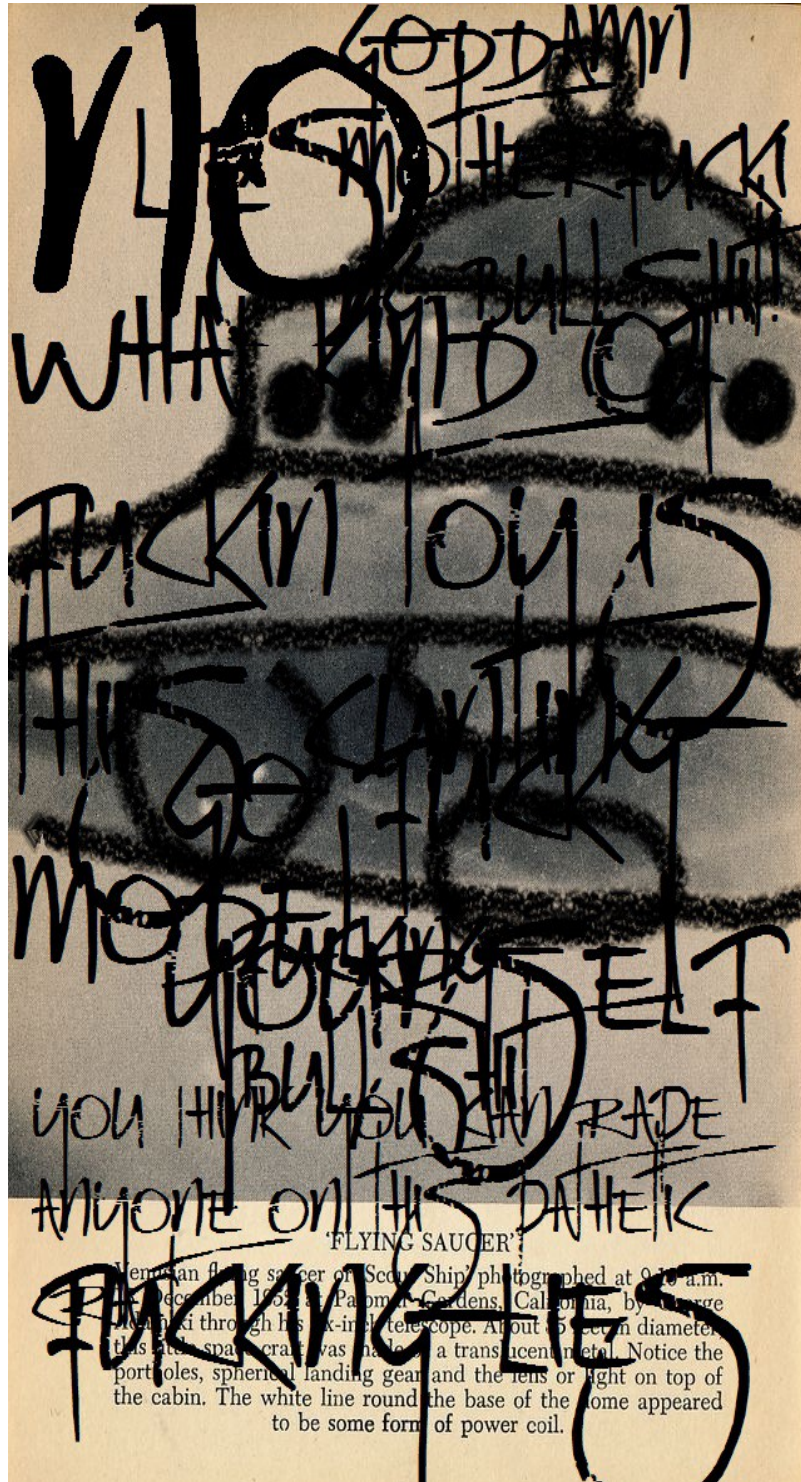 GODDAMN
no
LIES MOTHERFUCKI
BULLSHIT!
WHAT KIND OF
FUCKIN TOY IS
THIS CLANTING
GO FUCK
MODEL
FUCKING
YOURSELF
BULLSHIT
YOU THINK YOU CAN RADE
ANYONE ON THIS PATHETIC
'FLYING SAUCER'
Venusian flying saucer or 'Scout Ship' photographed at 9.10 a.m.
December 1952 at Palomar Gardens, California, by George
through his six-inch telescope. About 35 feet in diameter,
this little space craft was made of a translucent metal. Notice the
portholes, spherical landing gear and the lens or light on top of
the cabin. The white line round the base of the dome appeared
to be some form of power coil.
FUCKING LIES